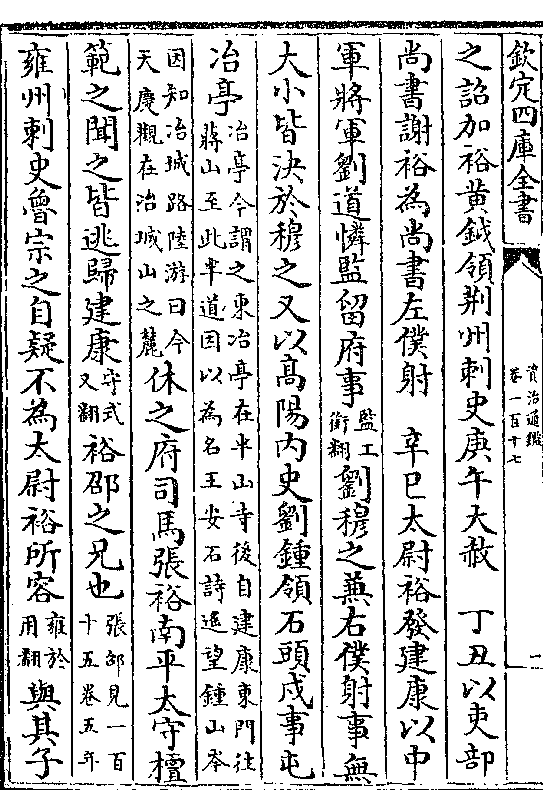 欽定四庫全書
資治通鑑
卷一百十七
一
之詔加裕黄鉞領荆州刺史庚午大赦　丁丑以吏部
尚書謝裕為尚書左僕射　辛巳太尉裕發建康以中
軍將軍劉道憐監留府事監工衘翻劉穆之兼右僕射事無
大小皆決於穆之又以髙陽内史劉鍾領石頭戍事屯
冶亭冶亭今謂之東冶亭在半山寺後自建康東門徃蔣山至此半道因以為名王安石詩遥望鍾山岑
因知冶城路陸游曰今天慶觀在冶城山之麓休之府司馬張裕南平太守檀
範之聞之皆逃歸建康守式又翻裕邵之兄也張邵見一百十五卷五年
雍州刺史魯宗之自疑不為太尉裕所容雍於用翻與其子